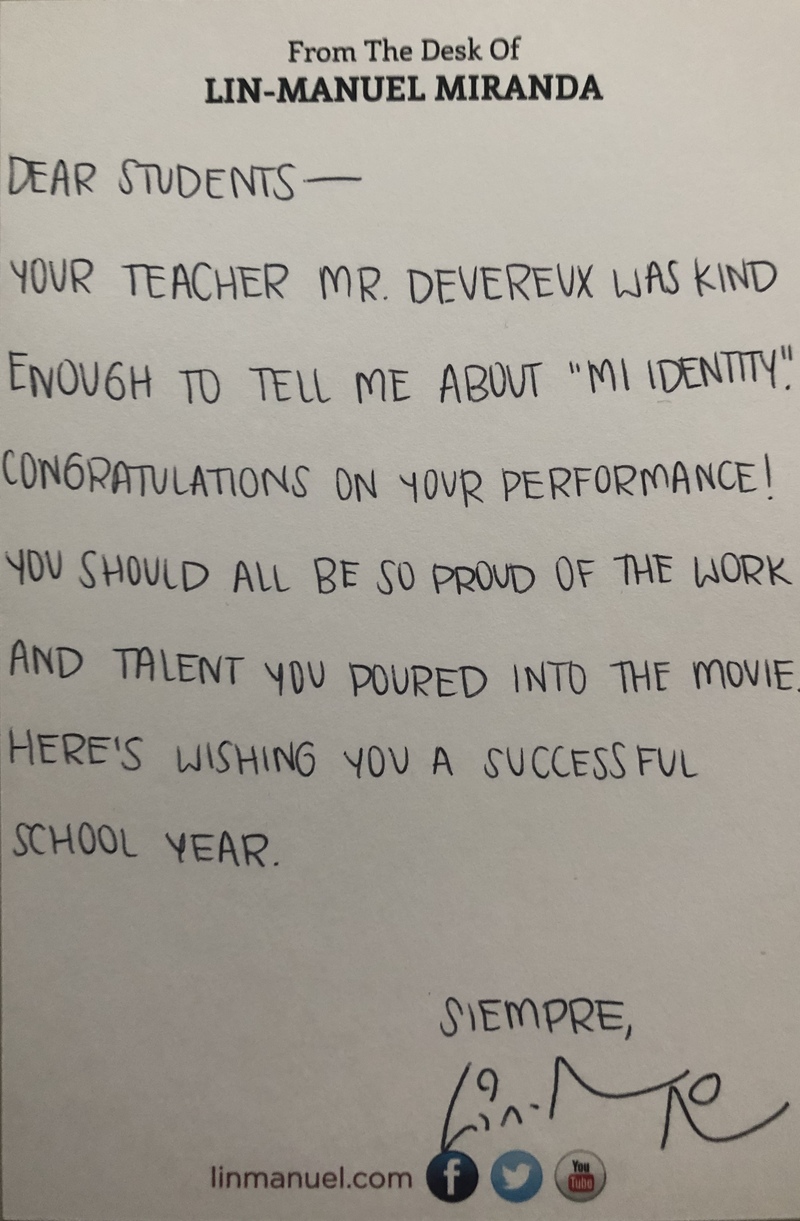 From The Desk Of
LIN-MANUEL MIRANDA
DEAR STUDENTS —
YOUR TEACHER MR. DEVEREUX WAS KIND
ENOUGH TO TELL ME ABOUT "MI IDENTITY".
CONGRATULATIONS ON YOUR PERFORMANCE!
YOU SHOULD ALL BE SO PROUD OF THE WORK
AND TALENT YOU POURED INTO THE MOVIE.
HERE'S WISHING YOU A SUCCESSFUL
SCHOOL YEAR.
SIEMPRE,
Lin-M
linmanuel.com f You Tube